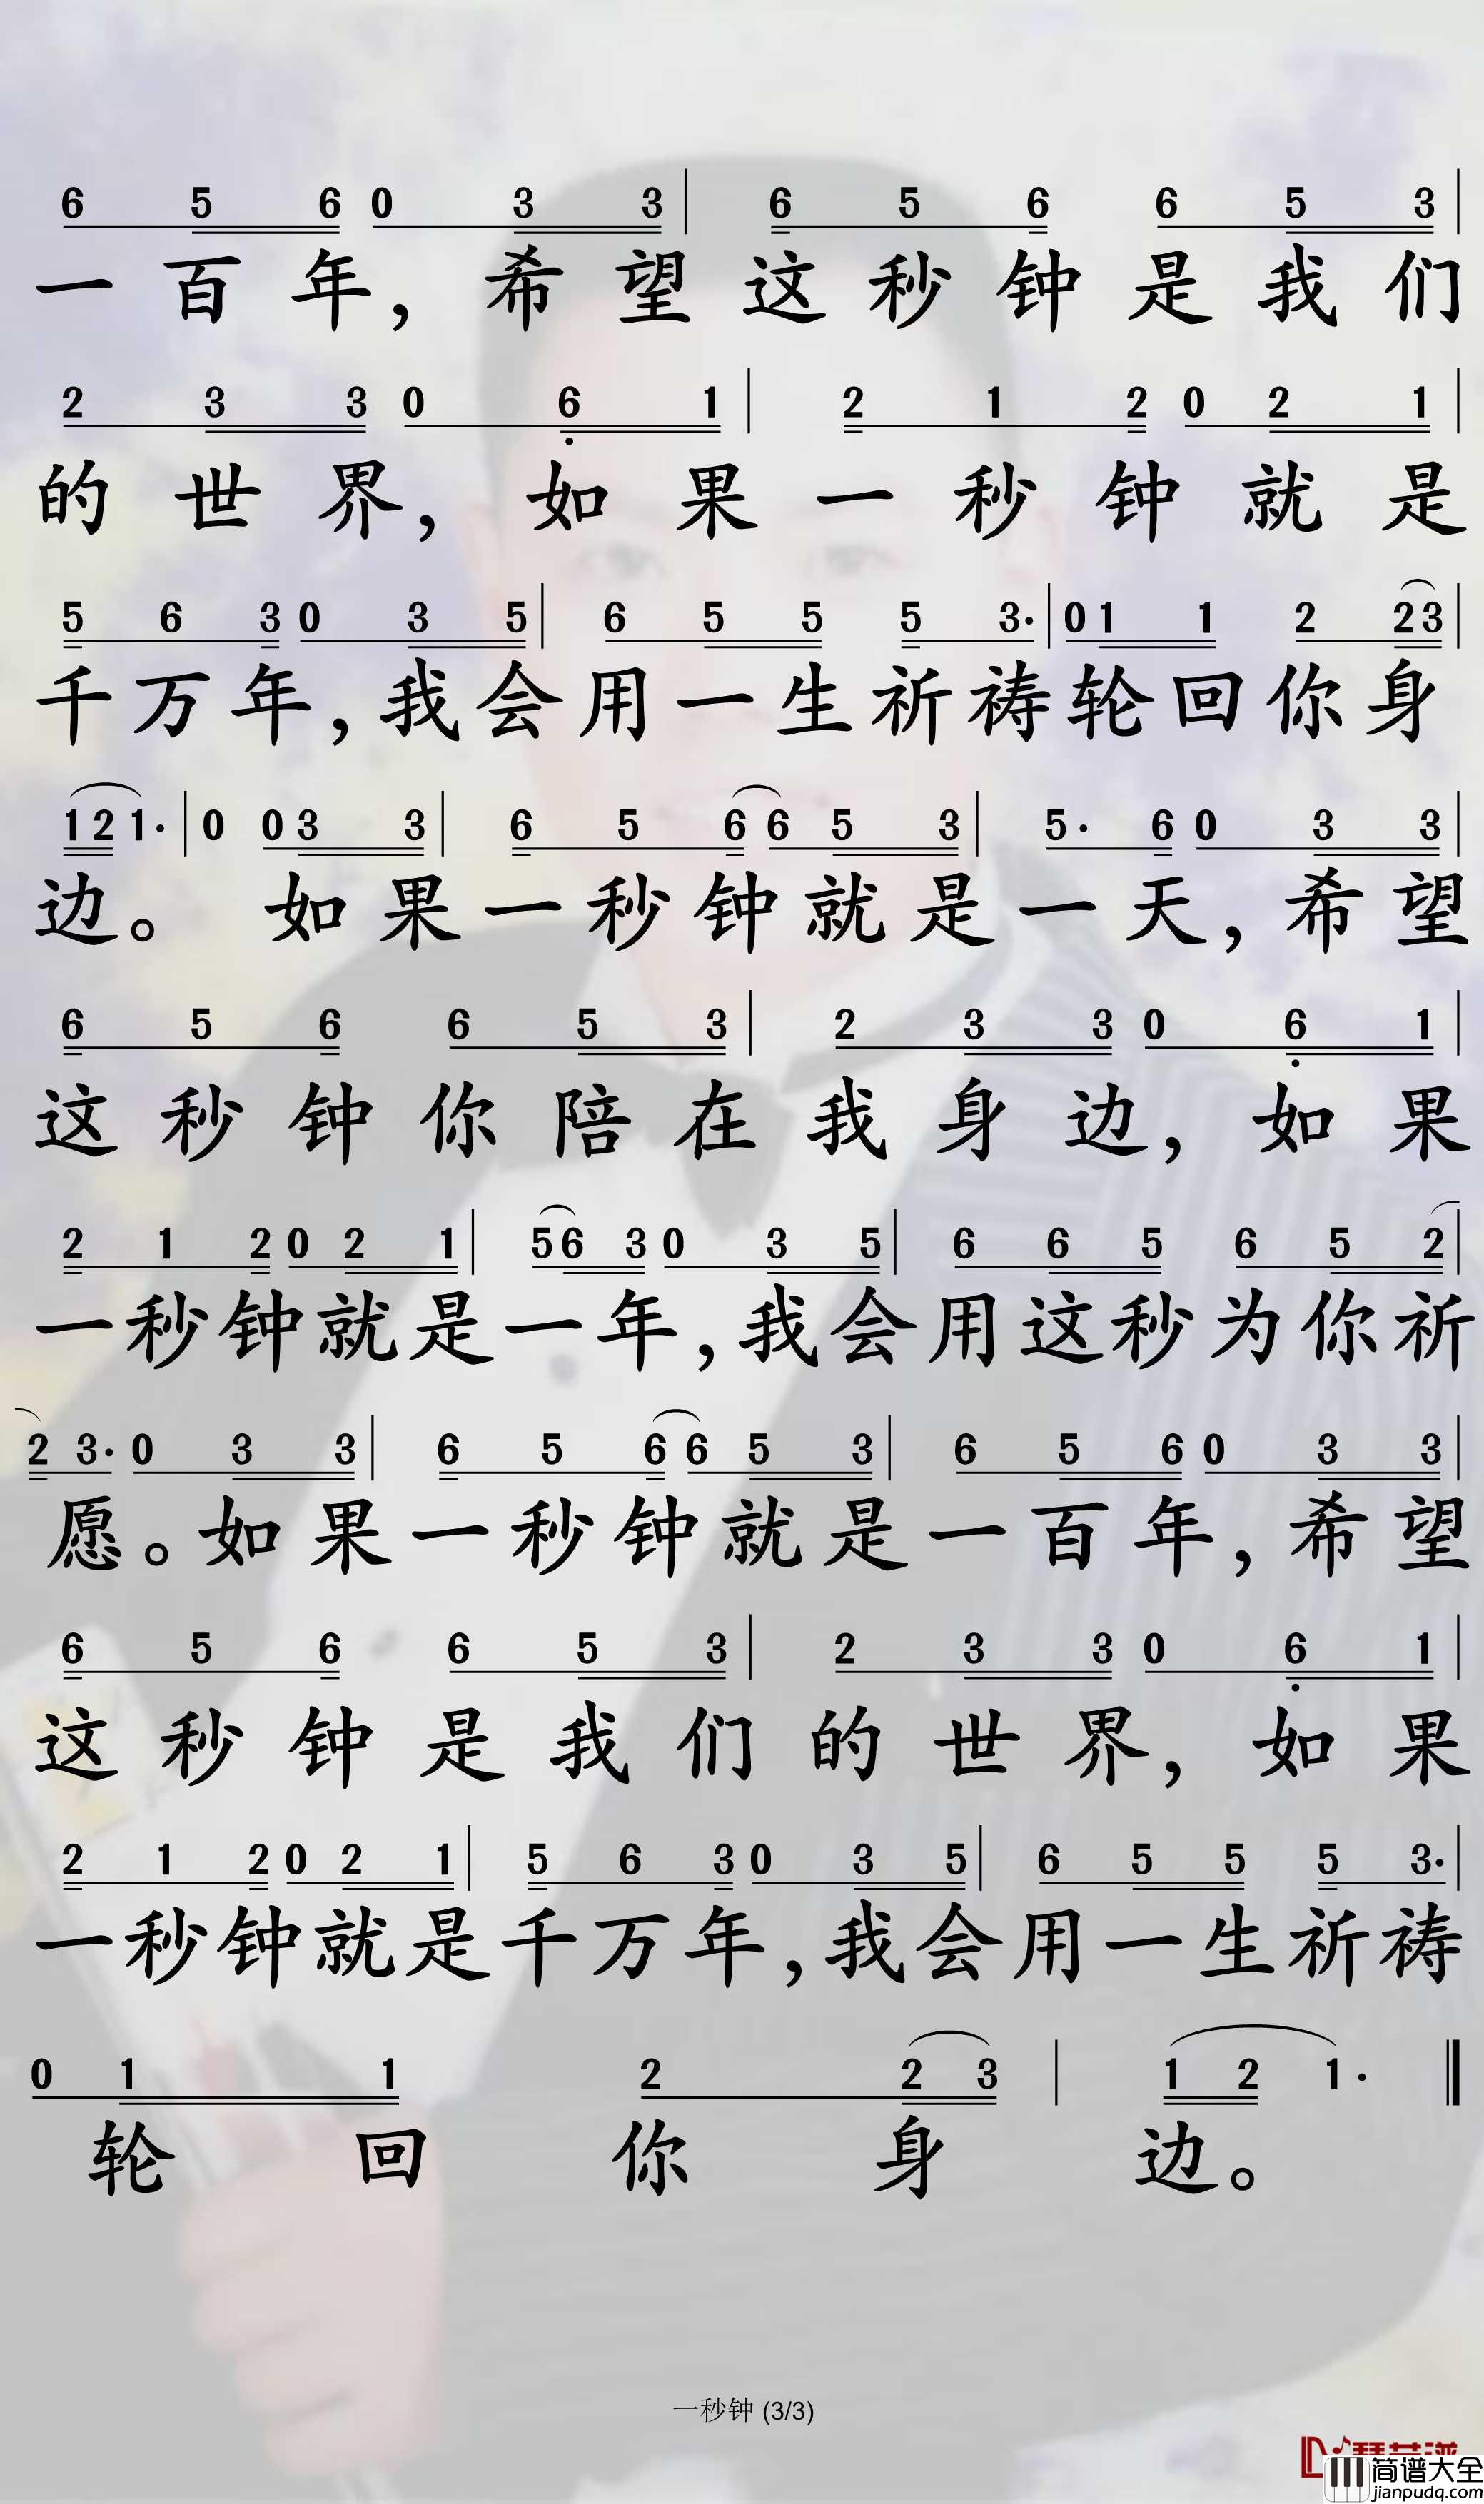 6 5 6 0 3 3 | 6 5 6 6 5 3 |
一百年，希望这秒钟是我们
2 3 3 0 6 1 | 2 1 2 0 2 1 |
的世界，如果一秒钟就是
5 6 3 0 3 5 | 6 5 5 5 3· | 0 1 1 2 2 3 |
千万年，我会用一生祈祷轮回你身
1 2 1· | 0 0 3 3 | 6 5 6 6 5 3 | 5· 6 0 3 3 |
边。如果一秒钟就是一天，希望
6 5 6 6 5 3 | 2 3 3 0 6 1 |
这秒钟你陪在我身边，如果
2 1 2 0 2 1 | 5 6 3 0 3 5 | 6 6 5 6 5 2 |
一秒钟就是一年，我会用这秒为你祈
2 3· 0 3 3 | 6 5 6 6 5 3 | 6 5 6 0 3 3 |
愿。如果一秒钟就是一百年，希望
6 5 6 6 5 3 | 2 3 3 0 6 1 |
这秒钟是我们的世界，如果
2 1 2 0 2 1 | 5 6 3 0 3 5 | 6 5 5 5 3· |
一秒钟就是千万年，我会用一生祈祷
0 1 1 2 2 3 | 1 2 1· ‖
轮回你身边。
一秒钟 (3/3)
简谱大全
jianpudq.com